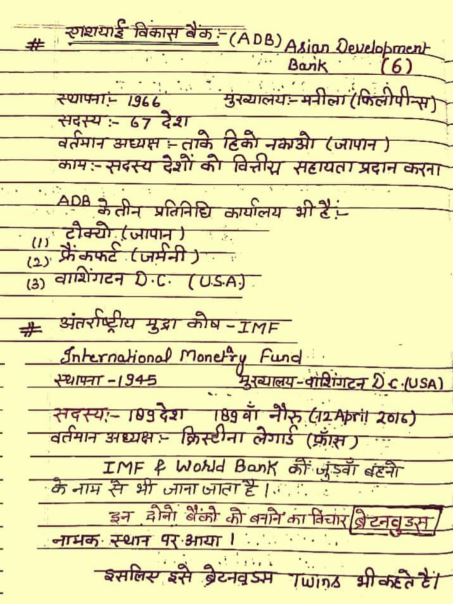 # एशियाई विकास बैंक :- (ADB) Asian Development
Bank (6)
स्थापना:- 1966 मुख्यालय:- मनीला (फिलीपीन्स)
सदस्य :- 67 देश
वर्तमान अध्यक्ष :- ताके हिको नकाओ (जापान)
काम:- सदस्य देशों को वित्तीय सहायता प्रदान करना
ADB के तीन प्रतिनिधि कार्यालय भी हैं:-
(1) टोक्यो (जापान)
(2) फ्रैंकफर्ट (जर्मनी)
(3) वाशिंगटन D.C. (USA)
# अंतर्राष्ट्रीय मुद्रा कोष - IMF
International Monetary Fund
स्थापना - 1945 मुख्यालय - वाशिंगटन D.C. (USA)
सदस्य:- 189 देश 189 वाँ नौरू (12 April 2016)
वर्तमान अध्यक्ष:- क्रिस्टीना लेगार्ड (फ्राँस)
IMF & World Bank को जुड़वाँ बहनो
के नाम से भी जाना जाता है।
इन दोनो बैंको को बनाने का विचार ब्रेटनवुडस
नामक स्थान पर आया।
इसलिए इसे ब्रेटनवुडस Twins भी कहते हैं।